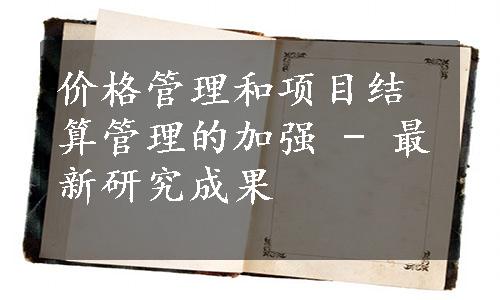 价格管理和项目结
算管理的加强 - 最
新研究成果